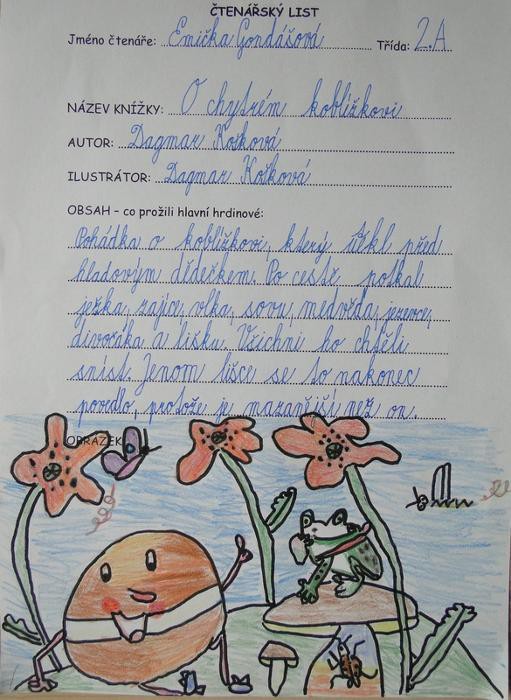 ČTENÁŘSKÝ LIST
Jméno čtenáře: Emička Gondášová Třída: 2.A
NÁZEV KNÍŽKY: O chytrém koblížkovi
AUTOR: Dagmar Košková
ILUSTRÁTOR: Dagmar Košková
OBSAH – co prožili hlavní hrdinové:
Pohádka o koblížkovi, který utekl před
hladovým dědečkem. Po cestě potkal
ježka, zajíce, vlka, sovu, medvěda, jezevce,
divočáka a lišku. Všichni ho chtěli
sníst. Jenom lišce se to nakonec
povedlo, protože je mazanější než on.
OBRÁZEK